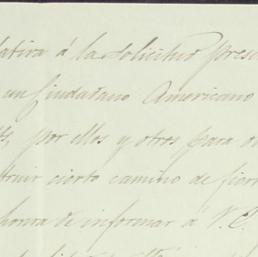 lativa á la solicitud prese
un Ciudadano Americano
por ellos y otros para o
truir cierto camino de fierr
honra de informar á V.E.